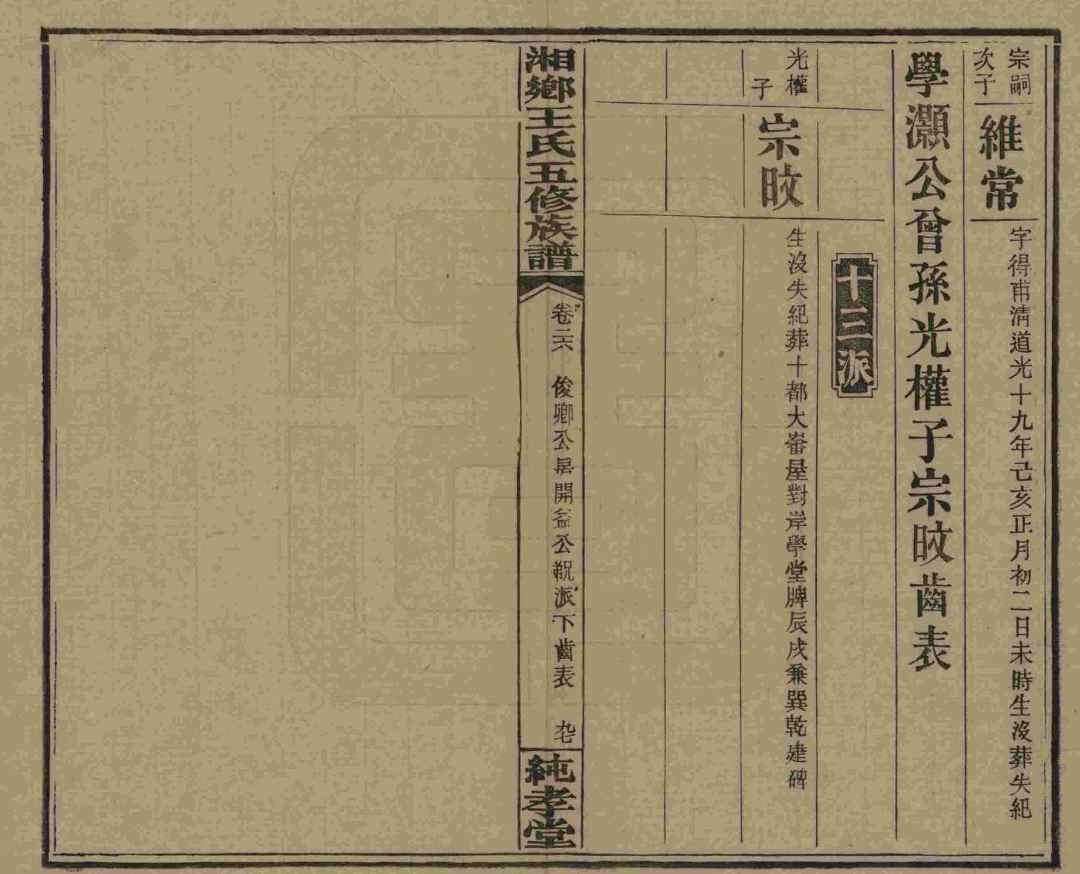 宗嗣
次子
維常
字得甫清道光十九年己亥正月初二日未時生沒葬失紀
學灝公曾孫光權子宗旼齒表
十三派
光權
子
宗旼
生沒失紀葬十都大崙屋對岸學堂脾辰戌兼巽乾建碑
湘鄉王氏五修族譜
卷二六
俊卿公房開益公祝派下齒表
純孝堂